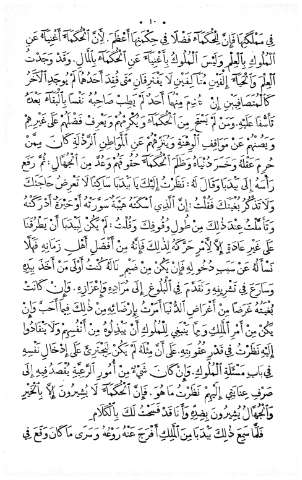 ‎- ١٠ -
في مملكتها فإن للحكماء فضلا في حكمتها أعظم. لأن الحكماء أغنياء عن
الملوك بالعلم وليس الملوك بأغنياء عن الحكماء بالمال. وقد وجدت
العلم والحياء إلفين متآلفين لا يفترقان متى فقد أحدهما لم يوجد الآخر
كالمتصافيين إن عدم منهما أحد لم يطب صاحبه نفسا بالبقاء بعده
تأسفا عليه. ومن لم يستحي من الحكماء ويكرمهم ويعرف فضلهم على غيرهم
ويصنهم عن مواقف الوهنة وينزههم عن المواطن الرذلة كان ممن
حرم عقله وخسر دنياه وظلم الحكماء حقوقهم وعد من الجهال. ثم رفع
رأسه إلى بيدبا وقال له: نظرت إليك يا بيدبا ساكتا لا تعرض حاجتك
ولا تذكر بغيتك فقلت: إن الذي أسكته هيبة ساورته أو حيرة أدركته
وتأملت عند ذلك من طول وقوفك وقلت: لم يكن لبيدبا أن يطرقنا
على غير عادة إلا لأمر حركه لذلك فإنه من أفضل أهل زمانه فهلا
نسأله عن سبب دخوله فإن يكن من ضيم ناله كنت أولى من أخذ بيده
وسارع في تشريفه وتقدم في البلوغ إلى مراده وإعزازه. وإن كانت
بغيته غرضا من أغراض الدنيا أمرت بإرضائه من ذلك فيما أحب وإن
يكن من أمر الملك ومما ينبغي للملوك أن يبذلوه من أنفسهم ولا ينقادوا
إليه نظرت في قدر عقوبته. على أن مثله لم يكن ليجترئ على إدخال نفسه
في باب مسئلة الملوك. وإن كان شيئا من أمور الرعية يقصد فيه إلى
صرف عنايتي إليهم نظرت ما هو. فإن الحكماء لا يشيرون إلا بالخير
والجهال يشيرون بضده وأنا قد فسحت لك بالكلام
فلما سمع ذلك بيدبا من الملك أفرخ عنه روعه وسرى ما كان وقع في